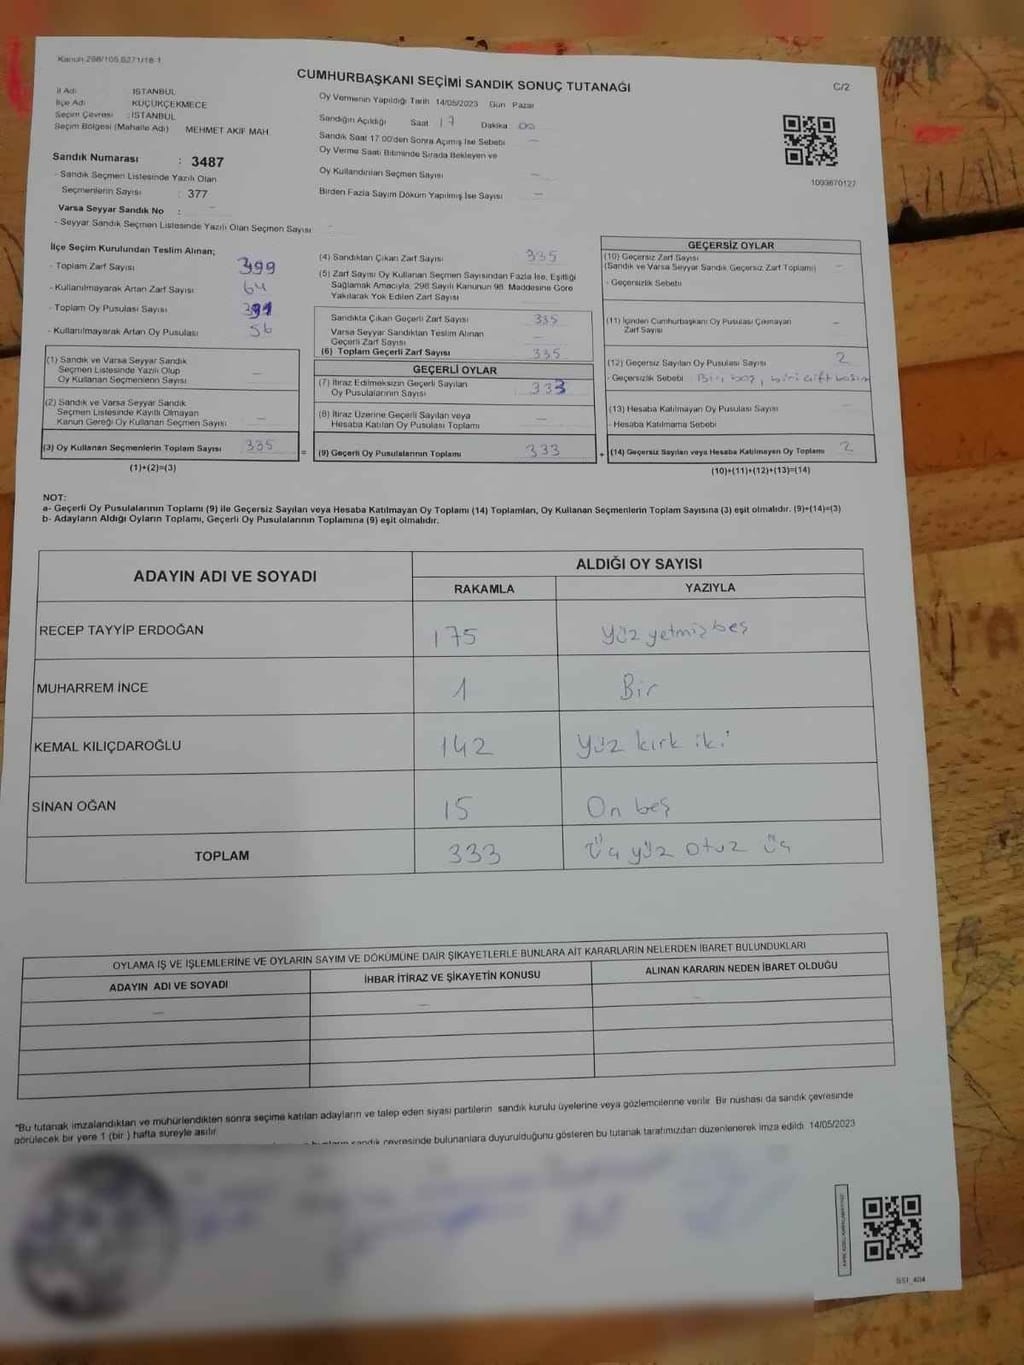 Kanun 298/105,6271/18-1
CUMHURBAŞKANI SEÇİMİ SANDIK SONUÇ TUTANAĞI
C/2
İl Adı : İSTANBUL
İlçe Adı : KÜÇÜKÇEKMECE
Seçim Çevresi : İSTANBUL
Seçim Bölgesi (Mahalle Adı) MEHMET AKİF MAH
Sandık Numarası : 3487
- Sandık Seçmen Listesinde Yazılı Olan
Seçmenlerin Sayısı : 377
Varsa Seyyar Sandık No : -
- Seyyar Sandık Seçmen Listesinde Yazılı Olan Seçmen Sayısı
Oy Vermenin Yapıldığı Tarih 14/05/2023 Gün Pazar
Sandığın Açıldığı Saat 17 Dakika 00
Sandık Saat 17.00'den Sonra Açılmış İse Sebebi -
Oy Verme Saati Bitiminde Sırada Bekleyen ve
Oy Kullandırılan Seçmen Sayısı -
Birden Fazla Sayım Döküm Yapılmış İse Sayısı -
1093670127
İlçe Seçim Kurulundan Teslim Alınan;
- Toplam Zarf Sayısı 399
- Kullanılmayarak Artan Zarf Sayısı 64
- Toplam Oy Pusulası Sayısı
- Kullanılmayarak Artan Oy Pusulası 56
(1) Sandık ve Varsa Seyyar Sandık
Seçmen Listesinde Yazılı Olup
Oy Kullanan Seçmenlerin Sayısı -
(2) Sandık ve Varsa Seyyar Sandık
Seçmen Listesinde Kayıtlı Olmayan
Kanun Gereği Oy Kullanan Seçmen Sayısı -
(3) Oy Kullanan Seçmenlerin Toplam Sayısı 335 =
(1)+(2)=(3)
(4) Sandıktan Çıkan Zarf Sayısı 335
(5) Zarf Sayısı Oy Kullanan Seçmen Sayısından Fazla İse, Eşitliği
Sağlamak Amacıyla, 298 Sayılı Kanunun 98. Maddesine Göre
Yakılarak Yok Edilen Zarf Sayısı -
Sandıkta Çıkan Geçerli Zarf Sayısı 335
Varsa Seyyar Sandıktan Teslim Alınan
Geçerli Zarf Sayısı -
(6) Toplam Geçerli Zarf Sayısı 335
GEÇERLİ OYLAR
(7) İtiraz Edilmeksizin Geçerli Sayılan
Oy Pusulalarının Sayısı 333
(8) İtiraz Üzerine Geçerli Sayılan veya
Hesaba Katılan Oy Pusulası Toplamı -
(9) Geçerli Oy Pusulalarının Toplamı 333 +
GEÇERSİZ OYLAR
(10) Geçersiz Zarf Sayısı
(Sandık ve Varsa Seyyar Sandık Geçersiz Zarf Toplamı) -
- Geçersizlik Sebebi
(11) İçinden Cumhurbaşkanı Oy Pusulası Çıkmayan
Zarf Sayısı -
(12) Geçersiz Sayılan Oy Pusulası Sayısı 2
- Geçersizlik Sebebi Biri boş, biri çift basım
(13) Hesaba Katılmayan Oy Pusulası Sayısı -
- Hesaba Katılmama Sebebi
(14) Geçersiz Sayılan veya Hesaba Katılmayan Oy Toplamı 2
(10)+(11)+(12)+(13)=(14)
NOT:
a- Geçerli Oy Pusulalarının Toplamı (9) ile Geçersiz Sayılan veya Hesaba Katılmayan Oy Toplamı (14) Toplamları, Oy Kullanan Seçmenlerin Toplam Sayısına (3) eşit olmalıdır. (9)+(14)=(3)
b- Adayların Aldığı Oyların Toplamı, Geçerli Oy Pusulalarının Toplamına (9) eşit olmalıdır.
ADAYIN ADI VE SOYADI
ALDIĞI OY SAYISI
RAKAMLA YAZIYLA
RECEP TAYYİP ERDOĞAN 175 yüz yetmiş beş
MUHARREM İNCE 1 Bir
KEMAL KILIÇDAROĞLU 142 yüz kırk iki
SİNAN OĞAN 15 On beş
TOPLAM 333 Üç yüz otuz üç
OYLAMA İŞ VE İŞLEMLERİNE VE OYLARIN SAYIM VE DÖKÜMÜNE DAİR ŞİKAYETLERLE BUNLARA AİT KARARLARIN NELERDEN İBARET BULUNDUKLARI
ADAYIN ADI VE SOYADI İHBAR İTİRAZ VE ŞİKAYETİN KONUSU ALINAN KARARIN NEDEN İBARET OLDUĞU
- - -
"Bu tutanak imzalandıktan ve mühürlendikten sonra seçime katılan adayların ve talep eden siyasi partilerin sandık kurulu üyelerine veya gözlemcilerine verilir. Bir nüshası da sandık çevresinde
görülecek bir yere 1 (bir ) hafta süreyle asılır.
sandık çevresinde bulunanlara duyurulduğunu gösteren bu tutanak tarafımızdan düzenlenerek imza edildi. 14/05/2023